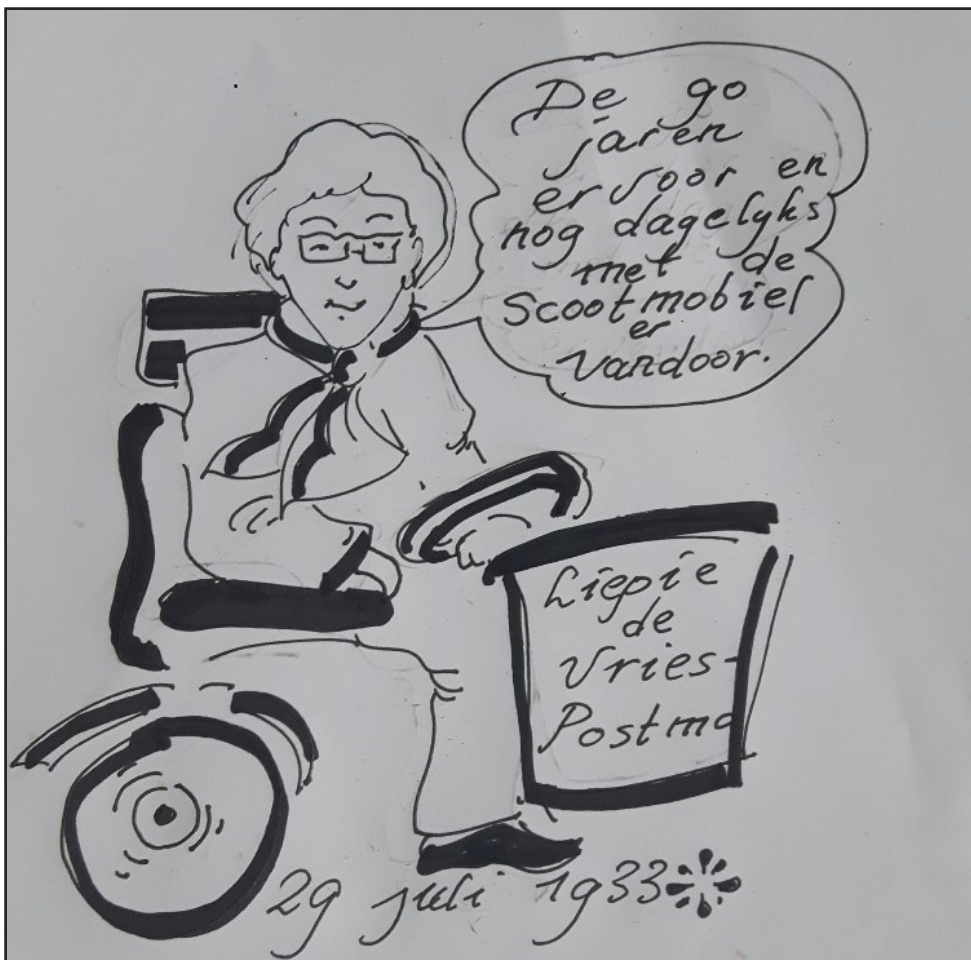 De 90
jaren
ervoor en
nog dagelyks
met de
Scootmobiel
er
vandoor.
Liepie
de
Vries-
Postma
29 juli 1933